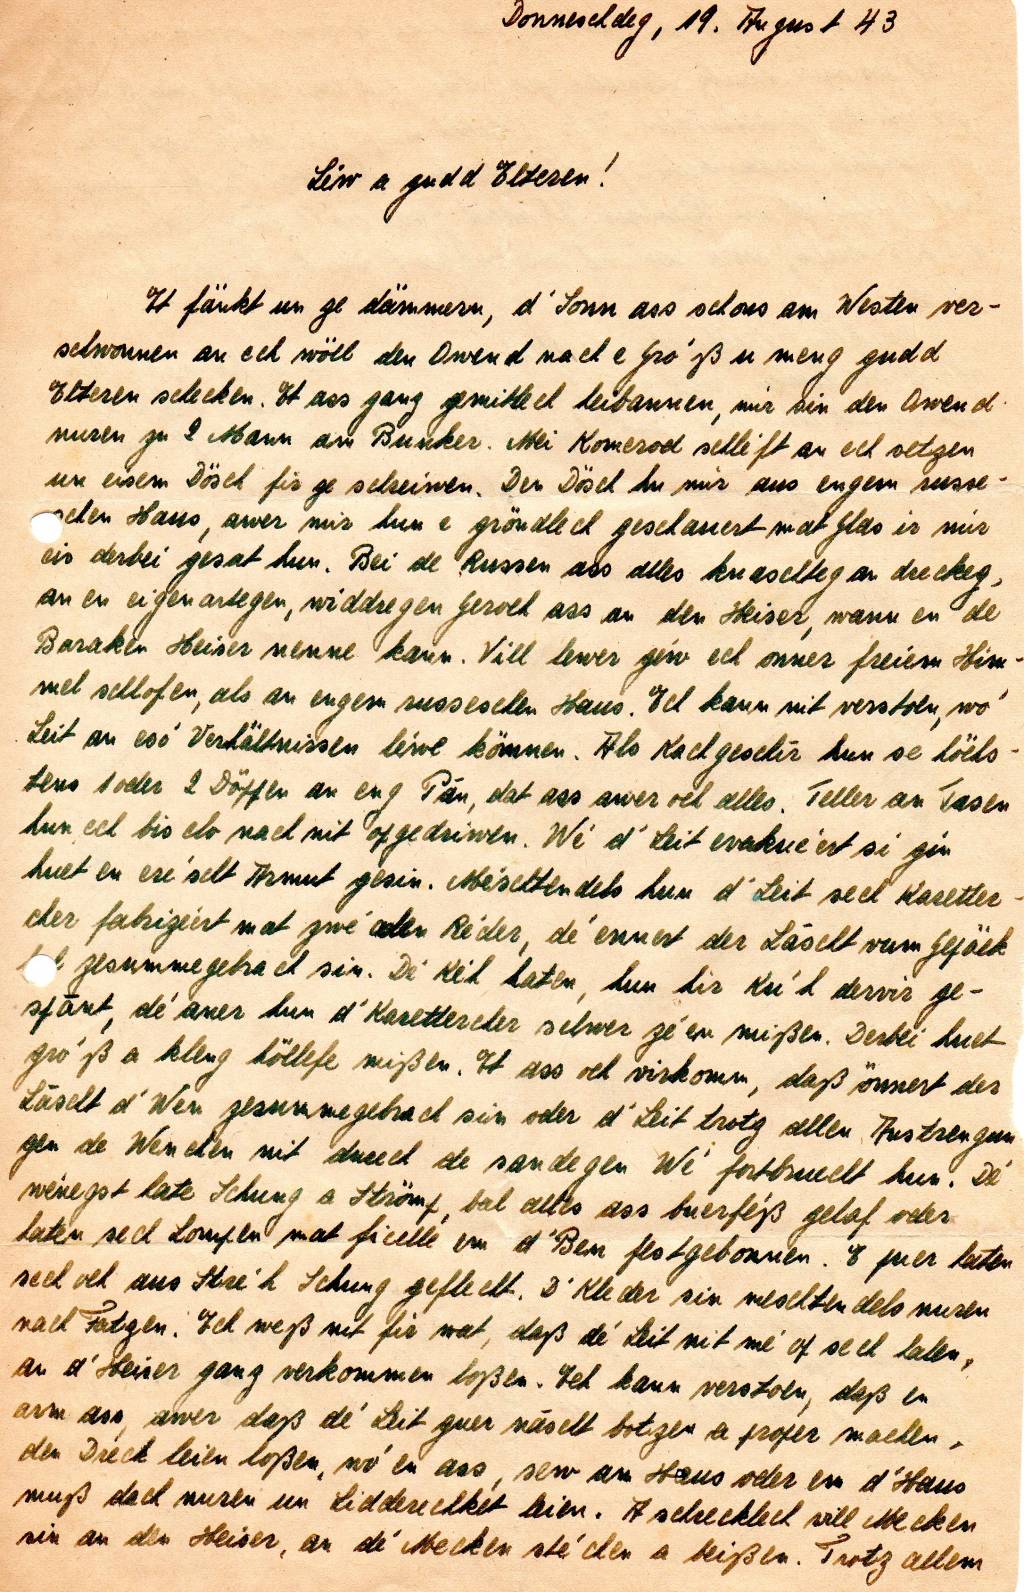 Donneschdeg, 19. August 43
Léiw a gudd Elteren!
Et fänkt un ze dämmern, d'Sonn ass schons am Westen ver-
schwonnen an ech wöll den Owend nach e Gro'ß u meng gudd
Elteren schecken. Et ass ganz gemittlech heibannen, mir sin den Owend
nuren zu 2 Mann am Bunker. Mei Komerod schléift an ech setzen
un eisem Dösch fir ze schreiwen. Den Dösch hu mir aus engem russe-
schen Haus, awer mir hun e gröndlech geschauert mat Glas ir mir
eis derbei gesat hun. Bei de Russen ass alles knaschteg an dreckeg,
an en eigenartegen, widdregen Geroch ass an den Heiser, wann en de
Baraken Heiser nenne kann. Vill lewer géw ech önner freiem Him-
mel schlofen, als an engem russeschen Haus. Ech kann nit verstoen, wó
Leit an esó Verhältnissen léwe kömmen. Als Kachgeschir hun se höchs-
tens 1 oder 2 Döppen an eng Pan, dat ass awer och alles. Teller an Tasen
hun ech bis elo nach nit opgedriwen. Wé d'Leit evakuéert si gin
huet en eréischt Armut gesin. Meschtendels hun d'Leit sech Karetter-
cher fabrizéert mat zwé alen Rieder, dé ennert der Läscht vum Gepäck
zesummegebrach sin. Dé Kéh haten, hun hir Kéh dervir ge-
spant, dé aner hun d'Karettercher selwer zéen mißen. Derbei huet
gro'ß a kleng hëllefe mißen. Et ass och virkomm, daß önnert der
Läscht d'Wen zesummegebrach sin oder d'Leit trotz allen Anstrengun
gen de Wenchen nit duerch de sandegen Wé fortbruecht hun. Dé
wéinegst hate Schung a Strömp, bal alles ass buerféß gelaf oder
haten sech Lompen mat ficelle em d'Ben festgebonnen. E puer haten
sech och aus Stréh Schung geflecht. D'Kleder sin meschtendels nuren
nach Fatzen. Ech weß nit fir wat, daß dé Leit nit mé op sech halen,
an d'Heiser ganz verkommen loßen. Ech kann verstoen, daß en
arm ass, awer daß dé Leit guer näscht botzen a proper machen,
den Dreck leien loßen, wó en ass, sew am Haus oder em d'Haus
muß dach nuren un Lidderechkét leien. A schrecklech vill Mecken
sin an den Heiser, an dé Mecken stéchen a beißen. Trotz allem